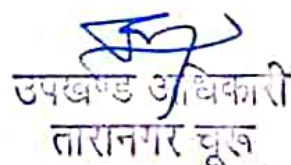 उपखण्ड अधिकारी
तारानगर चूरू